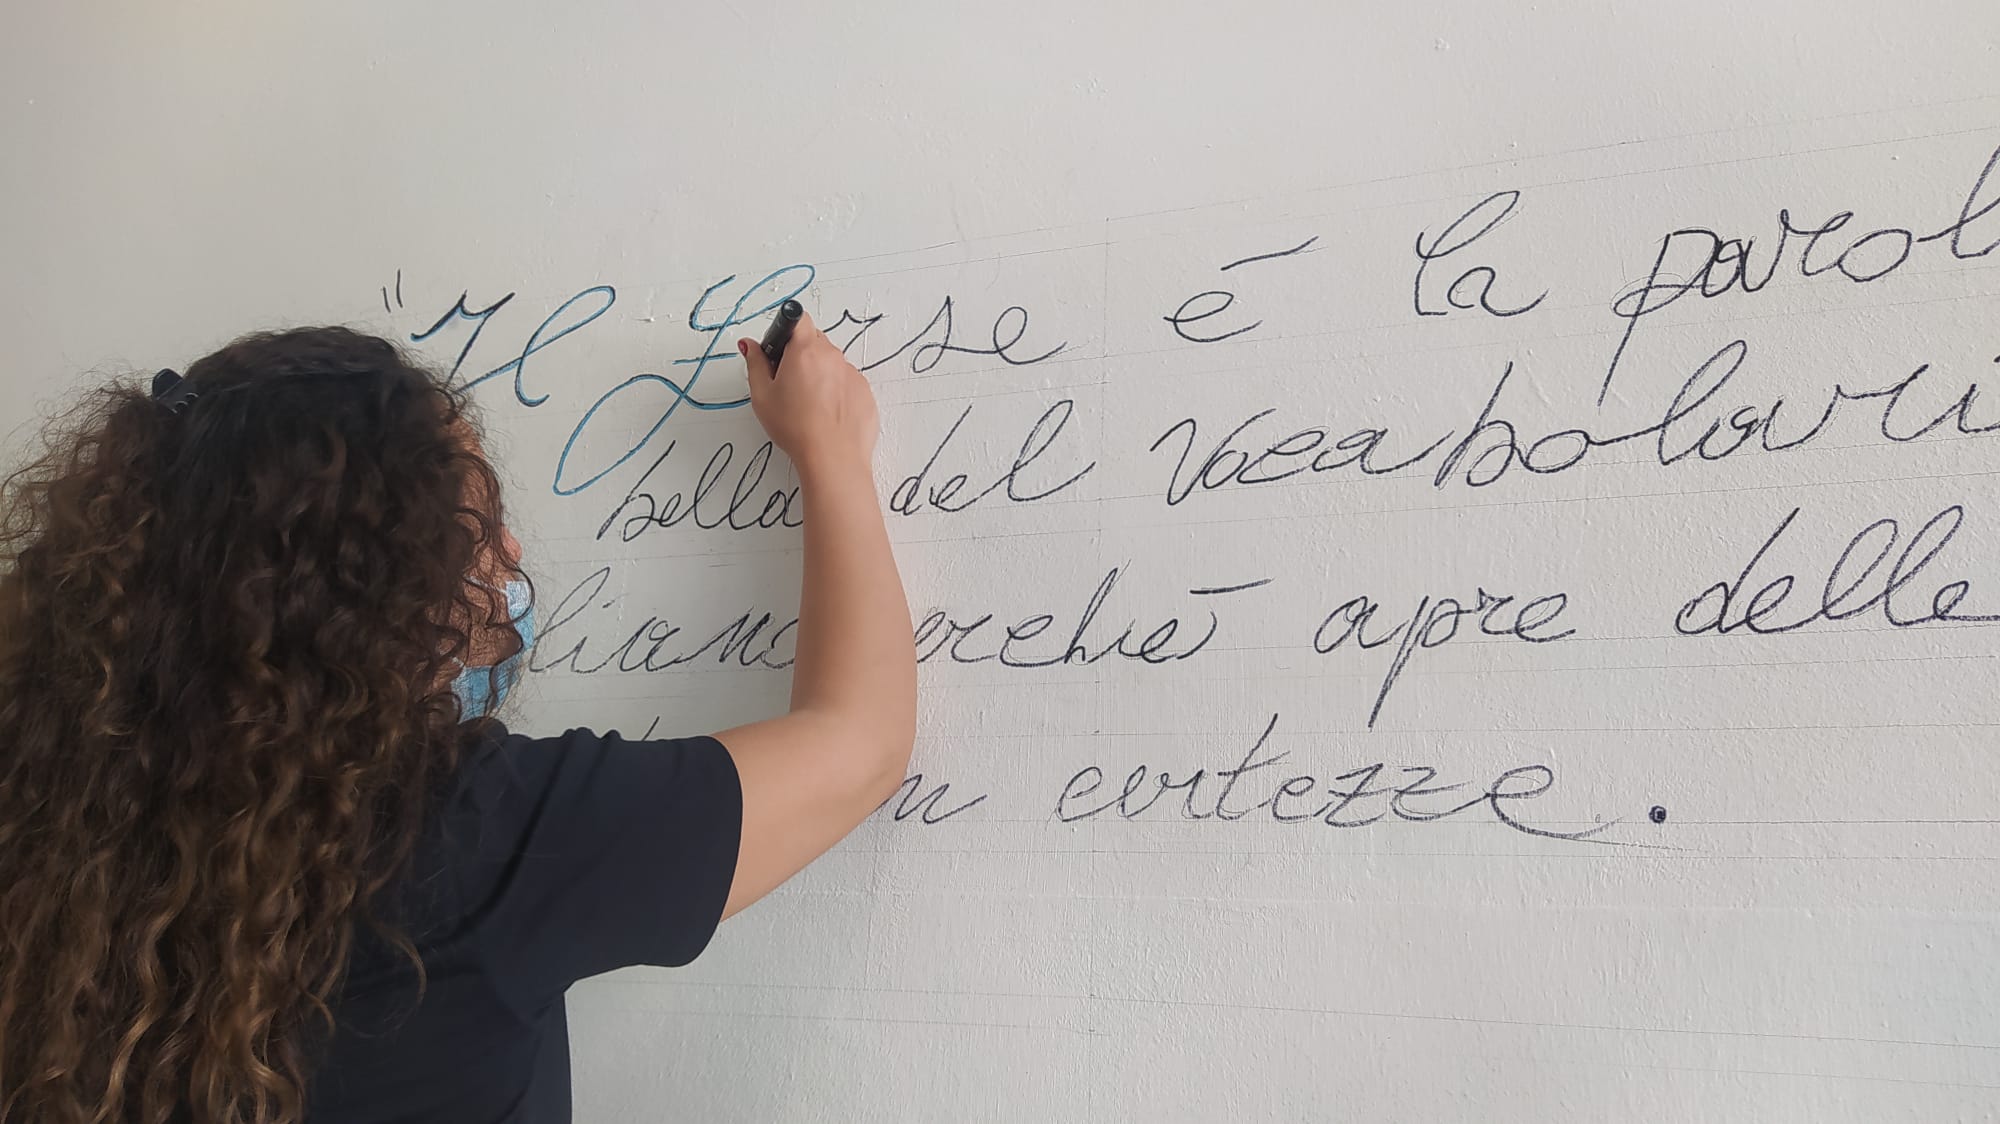 "Il Forse è la parol
bella del Vocabolari
liano perchè apre delle
n certezze.